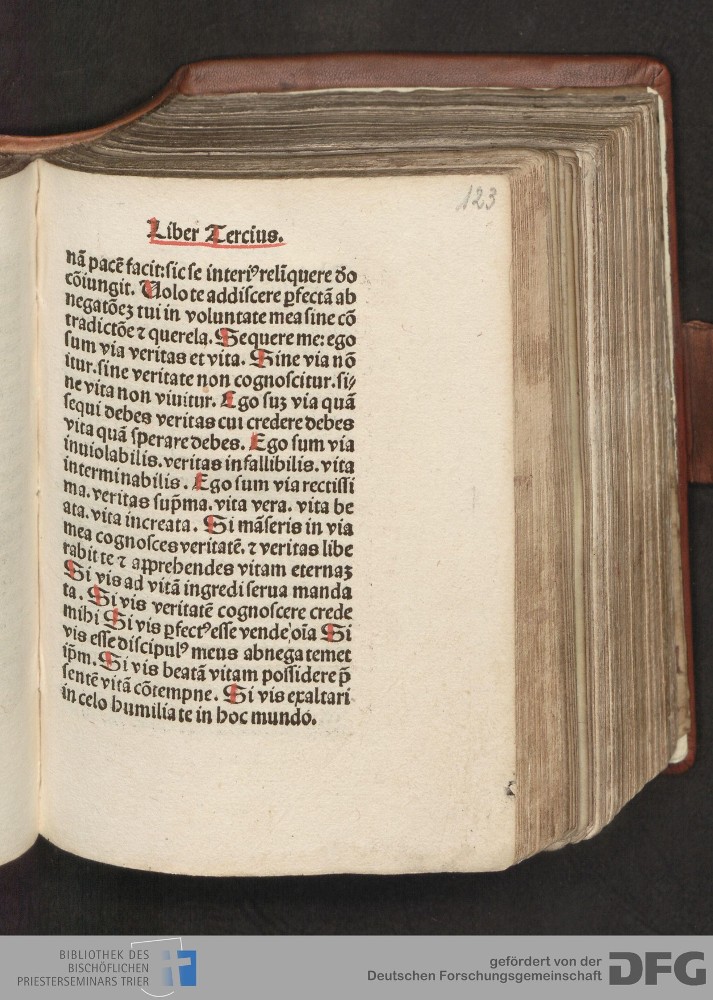 123
Liber Tercius.
nā pacē facit: sic se interiꝰ relīquere do
cōiungit. Uolo te addiscere ꝑfectā ab
negatōeꝫ tui in voluntate mea sine cō
tradictōe ⁊ querela. Sequere me: ego
sum via veritas et vita. Sine via nō
itur. sine veritate non cognoscitur. si⸗
ne vita non viuitur. Ego suꝫ via quā
sequi debes veritas cui credere debes
vita quā sperare debes. Ego sum via
inuiolabilis. veritas infallibilis. vita
interminabilis. Ego sum via rectissi
ma. veritas sup̄ma. vita vera. vita be
ata. vita increata. Si māseris in via
mea cognosces veritatē. ⁊ veritas libe
rabit te ⁊ apprehendes vitam eternaꝫ
Si vis ad vitā ingredi serua manda
ta. Si vis veritatē cognoscere crede
mihi Si vis ꝑfectꝰ esse vende oīa Si
vis esse discipulꝰ meus abnega temet
ip̄m. Si vis beatā vitam possidere p̄
sentē vitā cōtempne. Si vis exaltari
in celo humilia te in hoc mundo.
BIBLIOTHEK DES
BISCHÖFLICHEN
PRIESTERSEMINARS TRIER
gefördert von der
Deutschen Forschungsgemeinschaft
DFG